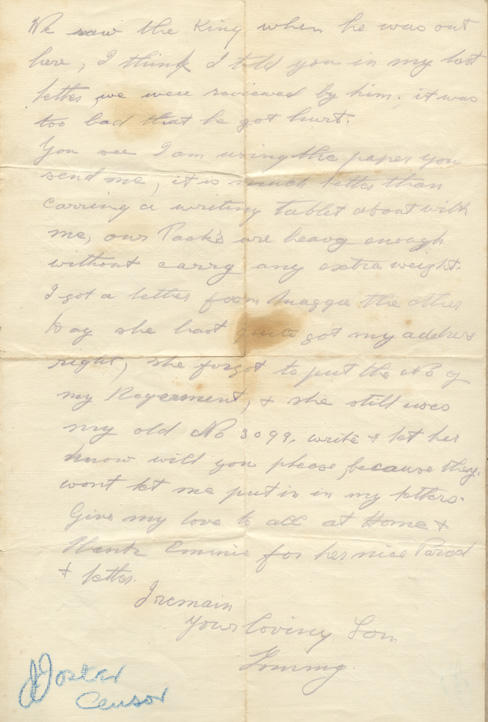 We saw the King when he was out
here, I think I told you in my last
letter, we were reviewed by him. it was
too bad that he got hurt.
You see I am using the paper you
send me, it is much better than
carring a writing tablet about with
me, our Pack's are heavy enough
without carry any extra weight.
I got a letter from Maggie the other
Day she hast quite got my address
right, she forgot to put the No of
my , & she still uses
my old No 3099. write & let her
know will you please, because they
wont let me put it in my letters.
Give my love to all at Home &
thank Emmie for her nice Parcel
& letter.
I remain
Your loving Son
Tommy.
Censor